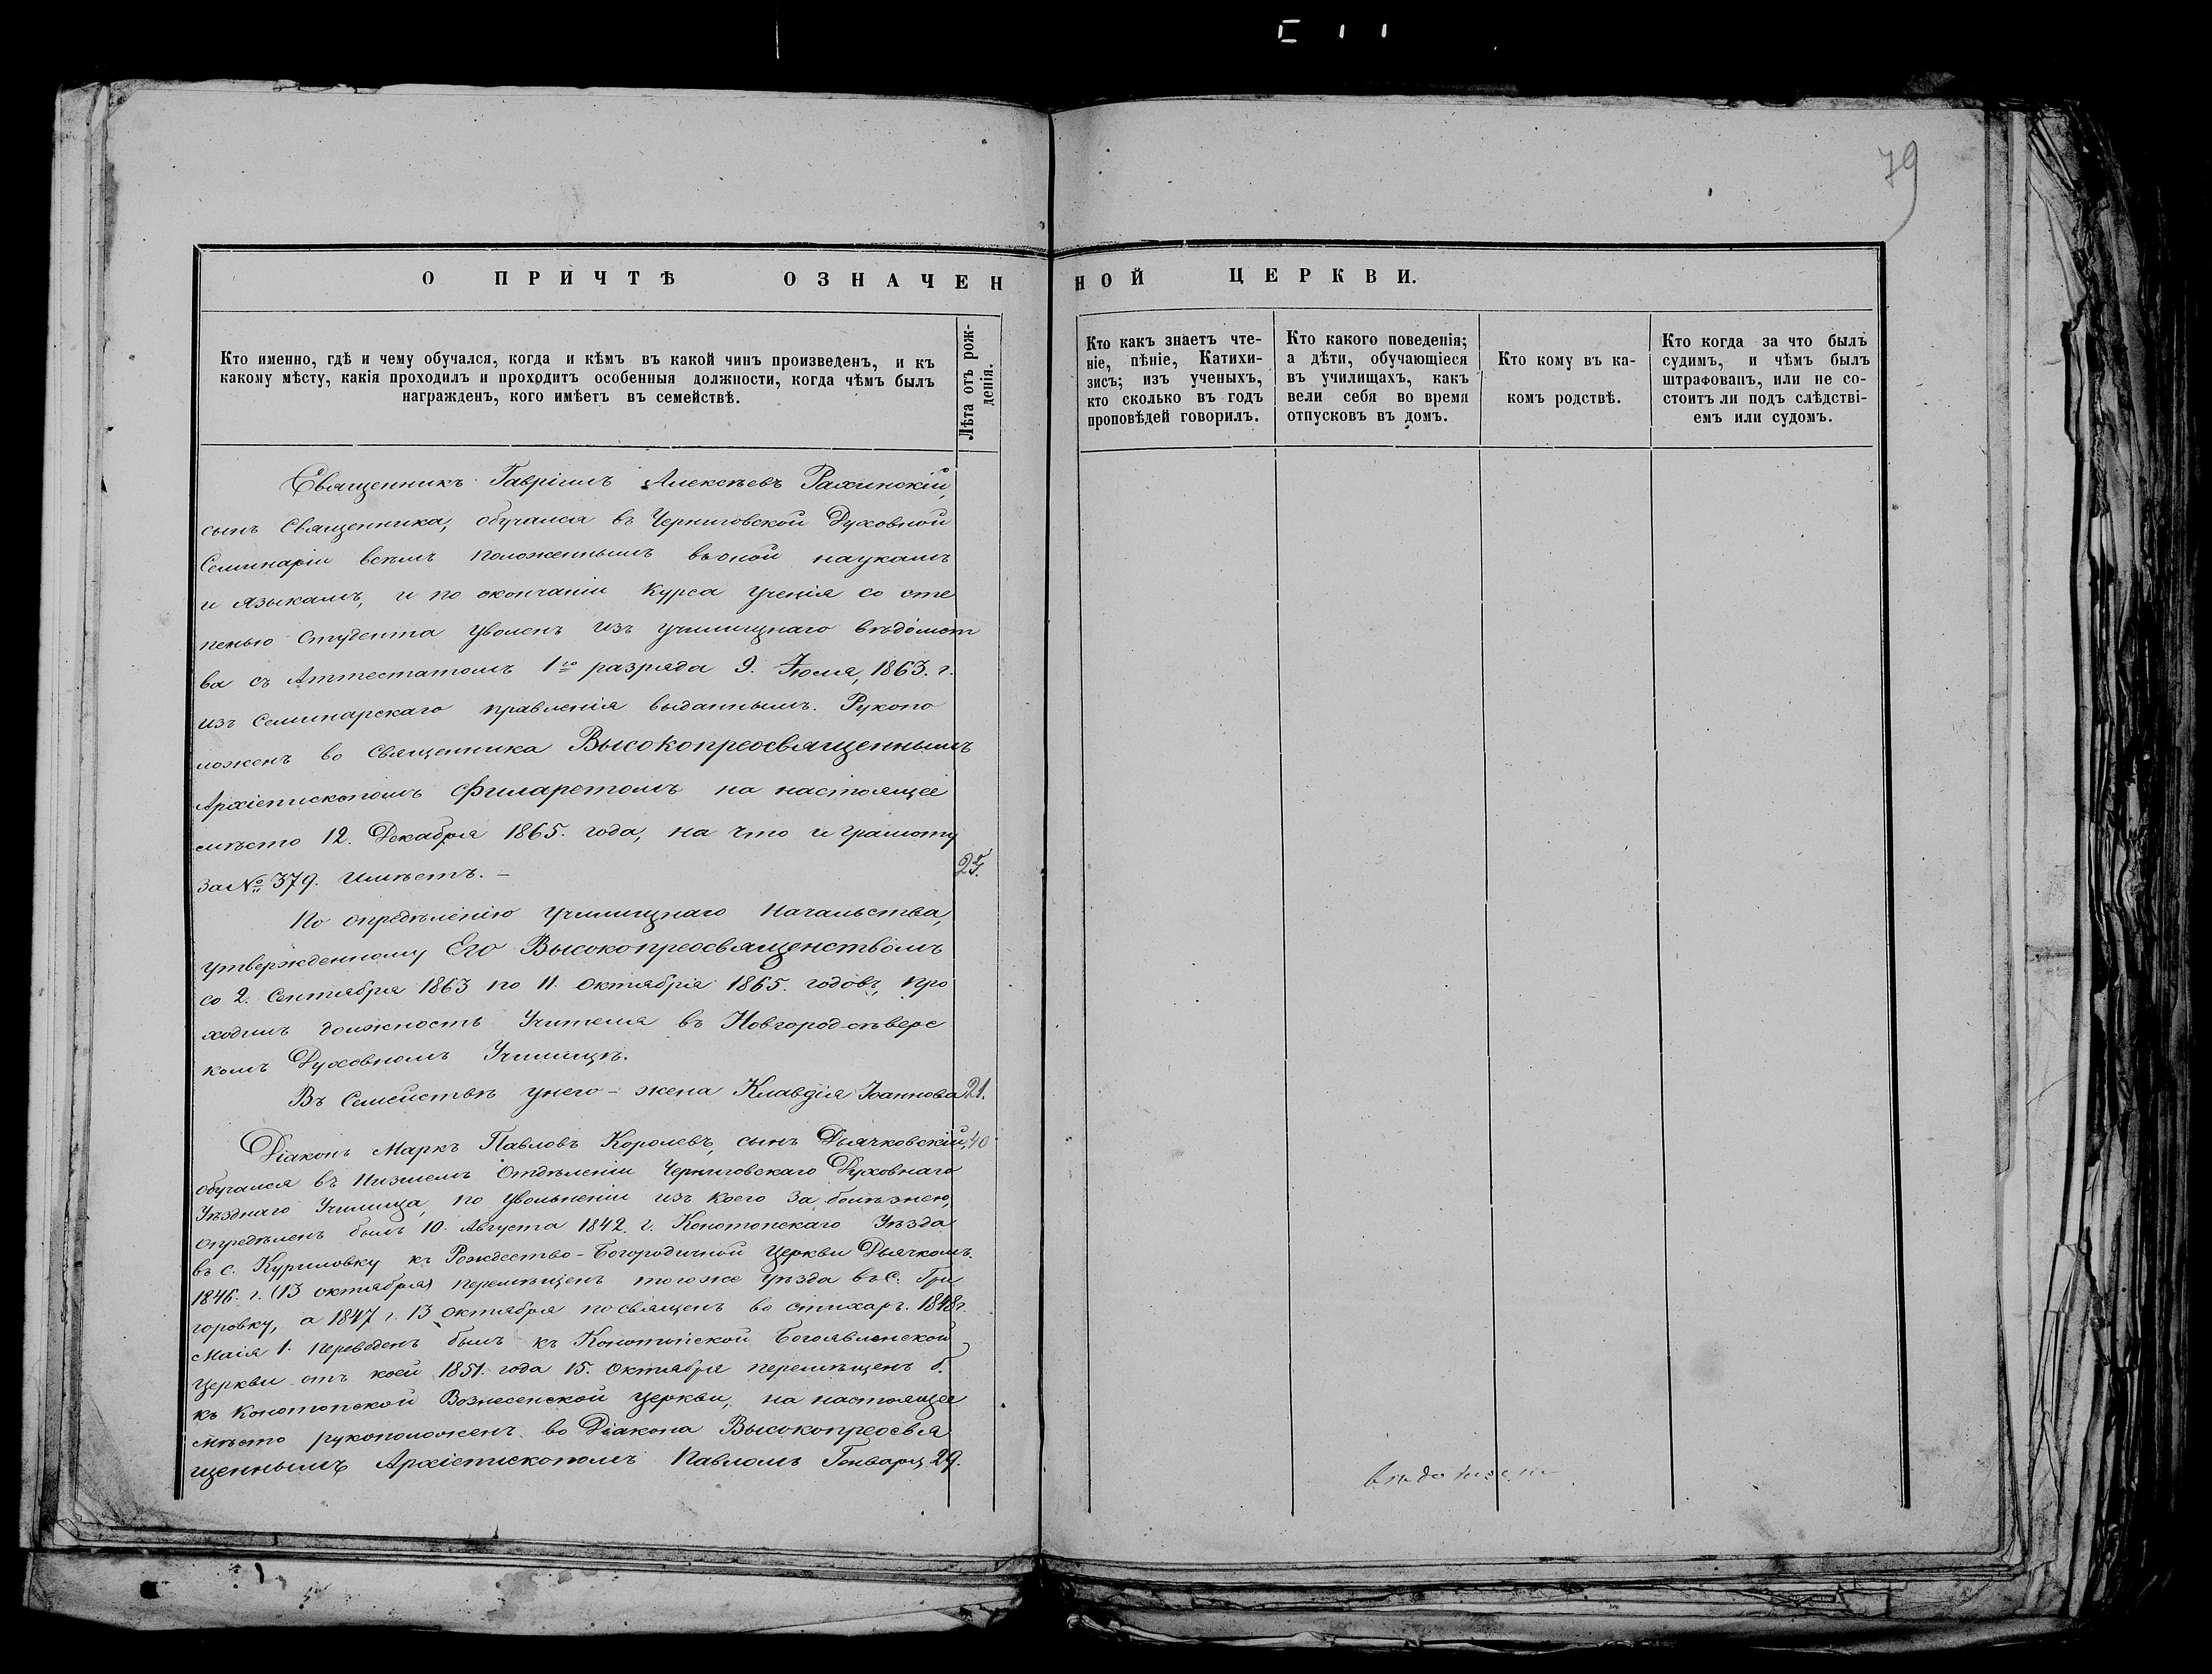 79
О ПРИЧТѢ ОЗНАЧЕННОЙ ЦЕРКВИ.
Кто именно, гдѣ и чему обучался, когда и кѣмъ въ какой чинъ произведенъ, и къ
какому мѣсту, какія проходилъ и проходитъ особенныя должности, когда чѣмъ былъ
награжденъ, кого имѣетъ въ семействѣ.
Лѣта отъ рож-
денія.
Кто какъ знаетъ чте-
ніе, пѣніе, Катихи-
зисъ; изъ ученыхъ,
кто сколько въ годъ
проповѣдей говорилъ.
Кто какого поведенія;
а дѣти, обучающіеся
въ училищахъ, какъ
вели себя во время
отпусковъ въ домъ.
Кто кому въ ка-
комъ родствѣ.
Кто когда за что былъ
судимъ, и чѣмъ былъ
штрафованъ, или не со-
стоитъ ли подъ слѣдстві-
емъ или судомъ.
Священникъ Гавріилъ Алексѣевъ Рахинскій,
сынъ Священника, обучался въ Черниговской Духовной
Семинаріи всѣмъ положеннымъ въ оной наукамъ
и языкамъ, и по окончаніи Курса ученія со сте
пенью Студента уволенъ изъ училищнаго вѣдомст
ва съ Аттестатомъ 1го разряда 9. Іюля, 1863. г.
изъ Семинарскаго правленія выданнымъ. Рукопо
ложенъ во Священника Высокопреосвященнымъ
Архіепископомъ Филаретомъ на настоящее
мѣсто 12. Декабря 1865. года, на что и грамоту
за № 379. имѣетъ. – 25.
По опредѣленію училищнаго Начальства,
утвержденному Его Высокопреосвященствомъ
со 2. Сентября 1863 по 11. Октября 1865. годовъ, про
ходилъ должность Учителя въ Новгород-сѣверс
комъ Духовномъ Училищѣ.
Въ Семействѣ у него – жена Клавдія Іоаннова 21.
Діаконъ Маркъ Павловъ Королевъ, сынъ Дьячковскій, 40
обучался въ Низшемъ Отдѣленіи Черниговскаго Духовнаго
Уѣзднаго Училища, по увольненіи изъ коего за болѣзнею,
опредѣленъ былъ 10. Августа 1842. г. Конотопскаго Уѣзда
въ с. Куриловку къ Рождество-Богородичной Церкви Дьячкомъ.
1846. г. (13 октября) перемѣщенъ тогоже уѣзда въ С. Гри
горовку, а 1847 г. 13 октября посвященъ во стихарь. 1848 г.
Маія 1. переведенъ былъ къ Конотопской Богоявленской
Церкви отъ коей 1851. года 15. Октября перемѣщенъ б.
къ Конотопской Вознесенской Церкви, на настоящее
мѣсто рукоположенъ во Діакона Высокопреосвя
щеннымъ Архіепископомъ Павломъ Генваря 29.